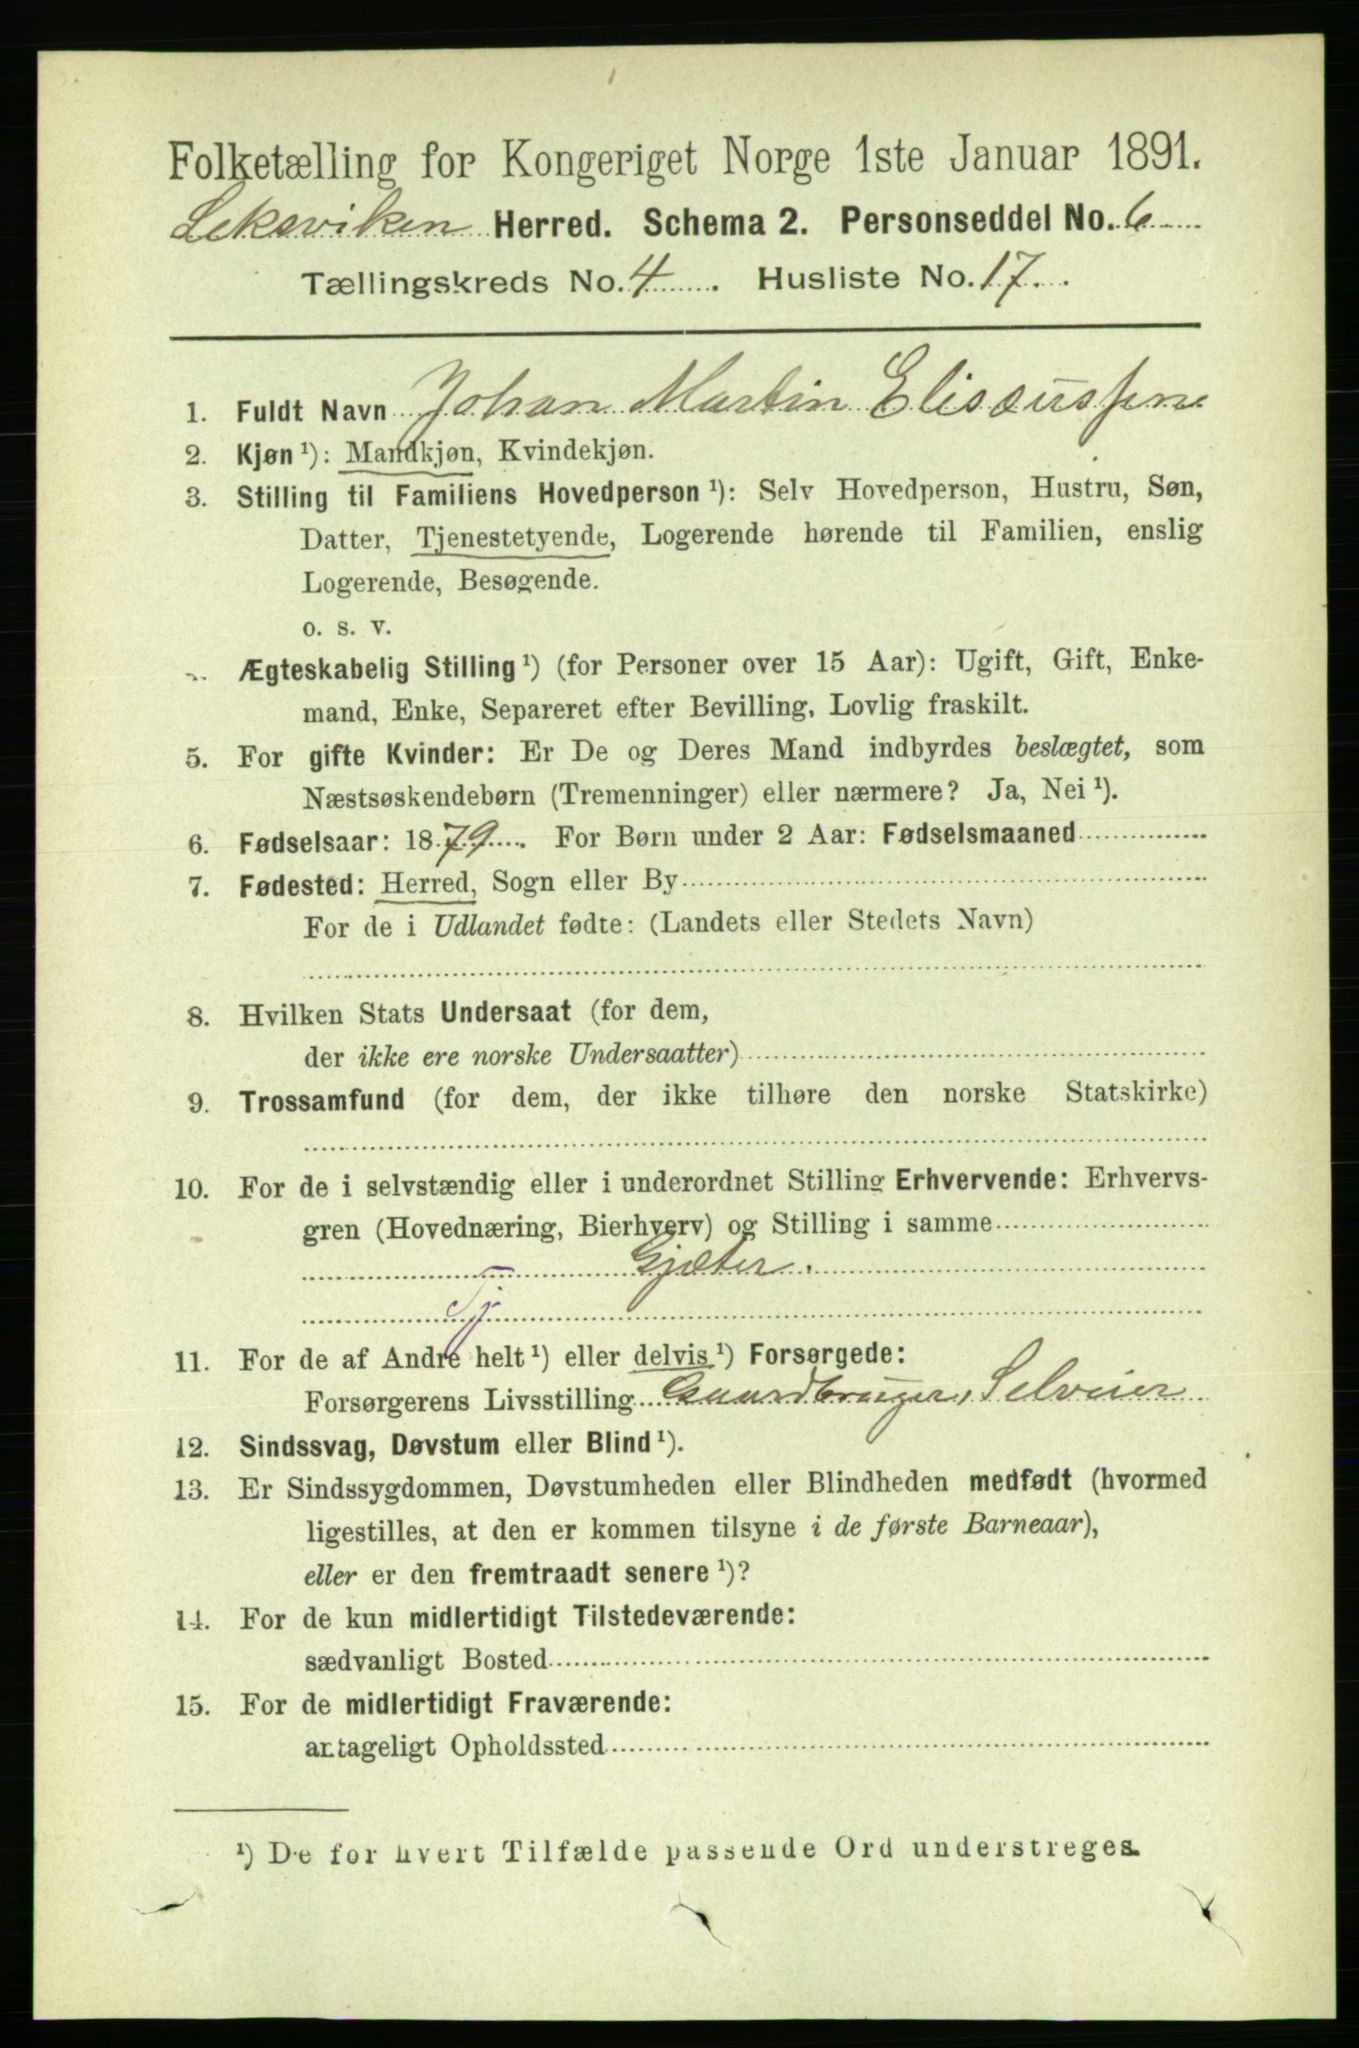 Folketælling for Kongeriget Norge 1ste Januar 1891.
Leksviken Herred. Schema 2. Personseddel No. 6
Tællingskreds No. 4. Husliste No. 17.
1. Fuldt Navn Johan Martin Elisæussen
2. Kjøn ¹): Mandkjøn, Kvindekjøn.
3. Stilling til Familiens Hovedperson ¹): Selv Hovedperson, Hustru, Søn,
Datter, Tjenestetyende, Logerende hørende til Familien, enslig
Logerende, Besøgende.
o. s. v.
Ægteskabelig Stilling ¹) (for Personer over 15 Aar): Ugift, Gift, Enke-
mand, Enke, Separeret efter Bevilling, Lovlig fraskilt.
5. For gifte Kvinder: Er De og Deres Mand indbyrdes beslægtet, som
Næstsøskendebørn (Tremenninger) eller nærmere? Ja, Nei ¹).
6. Fødselsaar: 1879. For Børn under 2 Aar: Fødselsmaaned
7. Fødested: Herred, Sogn eller By
For de i Udlandet fødte: (Landets eller Stedets Navn)
8. Hvilken Stats Undersaat (for dem,
der ikke ere norske Undersaatter)
9. Trossamfund (for dem, der ikke tilhøre den norske Statskirke)
10. For de i selvstændig eller i underordnet Stilling Erhvervende: Erhvervs-
gren (Hovednæring, Bierhverv) og Stilling i samme
Gjæter.
Tj
11. For de af Andre helt ¹) eller delvis ¹) Forsørgede:
Forsørgerens Livsstilling Gaardbruger, Selveier
12. Sindssvag, Døvstum eller Blind ¹).
13. Er Sindssygdommen, Døvstumheden eller Blindheden medfødt (hvormed
ligestilles, at den er kommen tilsyne i de første Barneaar),
eller er den fremtraadt senere ¹)?
14. For de kun midlertidigt Tilstedeværende:
sædvanligt Bosted
15. For de midlertidigt Fraværende:
antageligt Opholdssted
¹) De for hvert Tilfælde passende Ord understreges.